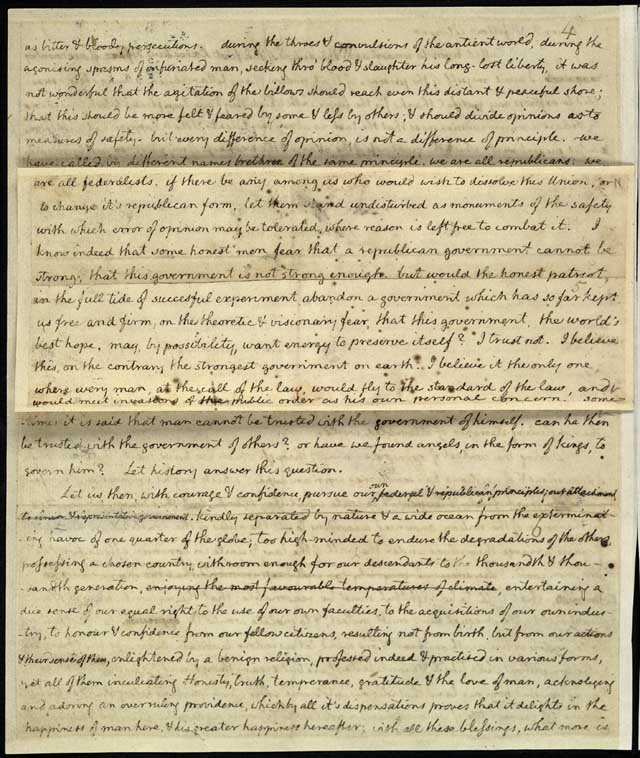 4
as bitter & bloody persecutions. during the throes & convulsions of the antient world, during the
agonising spasms of infuriated man, seeking thro' blood & slaughter his long-lost liberty, it was
not wonderful that the agitation of the billows should reach even this distant & peaceful shore;
that this should be more felt & feared by some & less by others; & should divide opinions as to
measures of safety. but every difference of opinion, is not a difference of principle. we
have called by different names brethren of the same principle. we are all republicans: we
are all federalists. if there be any among us who would wish to dissolve this Union, or
to change it's republican form, let them stand undisturbed as monuments of the safety
with which error of opinion may be tolerated, where reason is left free to combat it. I
know indeed that some honest men fear that a republican government cannot be
strong; that this government is not strong enough. but would the honest patriot,
in the full tide of succesful experiment abandon a government which has so far kept
us free and firm, on the theoretic & visionary fear, that this government, the world's
best hope, may, by possibility, want energy to preserve itself? I trust not. I believe
this, on the contrary, the strongest government on earth. I believe it the only one
where every man, at the call of the law, would fly to the standard of the law, and
would meet invasions of the public order as his own personal concern. some-
times it is said that man cannot be trusted with the government of himself. can he then
be trusted with the government of others? or have we found angels, in the form of kings, to
govern him? Let history answer this question.
Let us then, with courage & confidence, pursue our own federal & republican principles; our attachment
to union & representative government. Kindly separated by nature & a wide ocean from the exterminat-
-ing havoc of one quarter of the globe; too high-minded to endure the degradations of the others,
possessing a chosen country, with room enough for our descendants to the thousandth & thou-
-sandth generation, enjoying the most favourable temperatures of climate, entertaining a
due sense of our equal right to the use of our own faculties, to the acquisitions of our own indus-
-try, to honour & confidence from our fellow citizens, resulting not from birth, but from our actions
& their sense of them, enlightened by a benign religion, professed indeed & practised in various forms,
yet all of them inculcating honesty, truth, temperance, gratitude & the love of man, acknoleging
and adoring an overruling providence, which by all it's dispensations proves that it delights in the
happiness of man here, & his greater happiness hereafter; with all these blessings, what more is